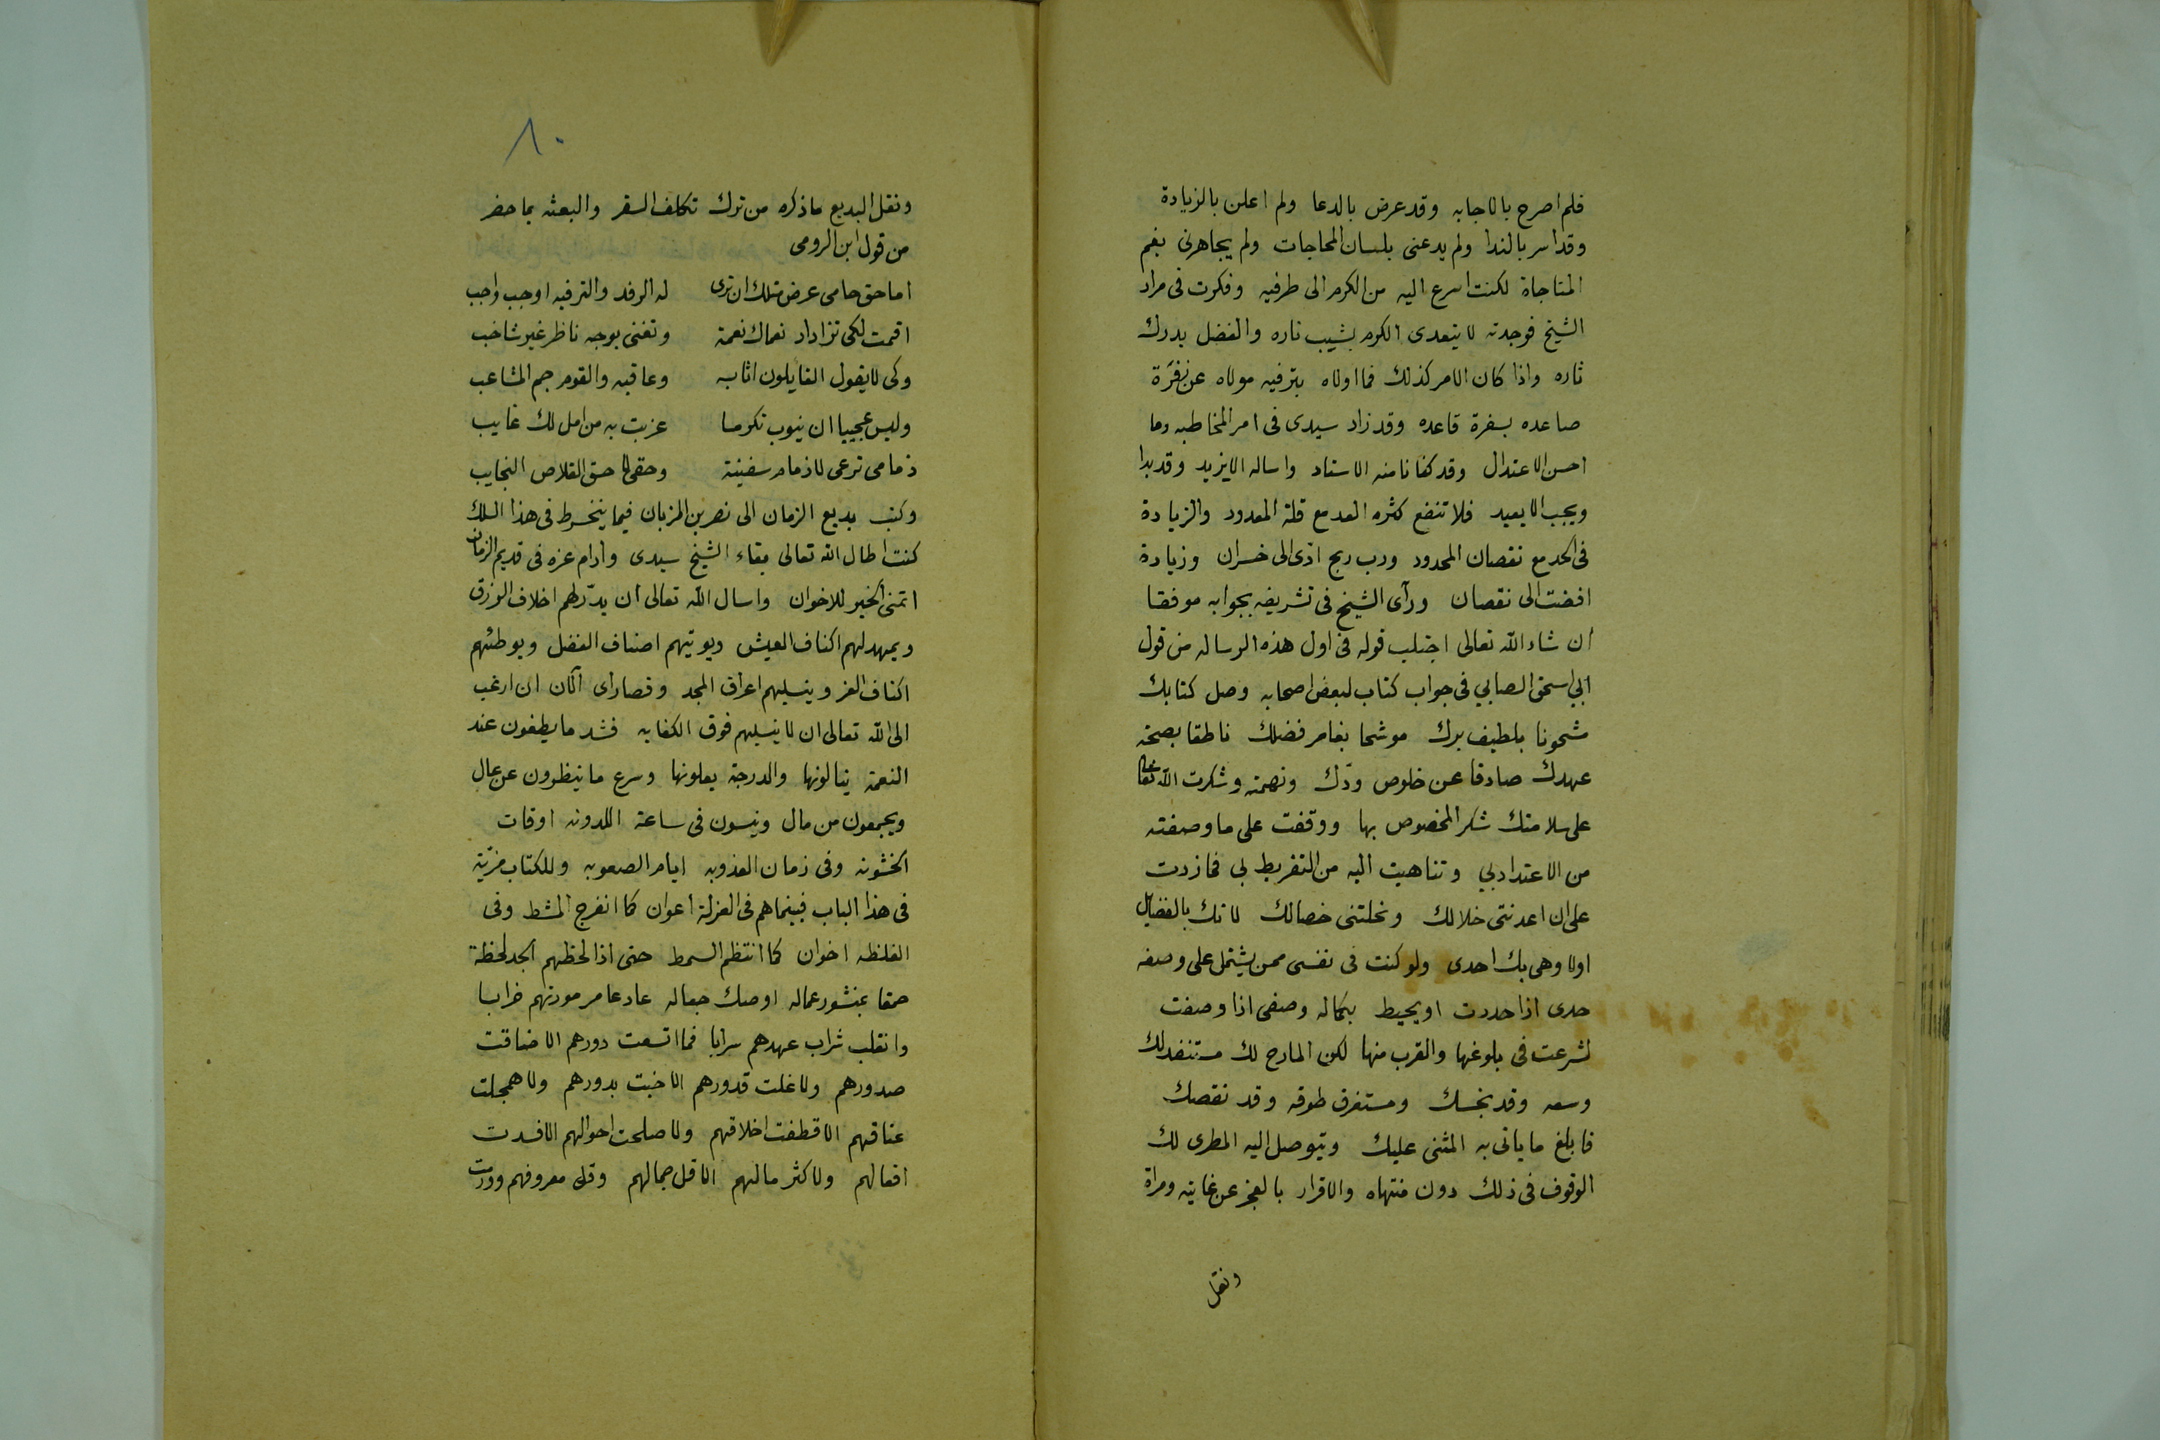 فلم اصرح بالاجابه وقد عرض بالدعا ولم اعلن بالزيادة
وقد اسر بالندا ولم يدعنى بلسان المحاجات ولم يجاهرنى بفم
المناجاة لكنت اسرع اليه من الكرم الى طرفيه وفكرت فى مراد
الشيخ فوجدته لا يتعدى الكرم يشيب ناره والفضل يدرك
ثاره واذا كان الامر كذلك فما اولاه بترفيه مولاه عن زفرة
صاعده بسفرة قاعده وقد زاد سيدى فى امر المخاطبه وما
احسن الاعتدال وقد كفانا منه الاستاد واساله الا يزيد وقد بدا
ويجب الا يعيد فلا تنفع كثره العد مع قلة المعدود والزيادة
فى الحد مع نقصان المحدود ورب ربح ادّى الى خسران وزيادة
افضت الى نقصان ورأى الشيخ فى تشريفه بجوابه موفقا
ان شاء الله تعالى اجتلب قوله فى اول هذه الرساله من قول
ابي اسحق الصابي فى جواب كتاب لبعض اصحابه وصل كتابك
مشحونا بلطيف برك موشحا بغامر فضلك ناطقا بصحة
عهدك صادقا عن خلوص ودّك وفهمته وشكرت الله تعالى
على سلامتك شكر المخصوص بها ووقفت على ما وصفته
من الاعتداد بي وتناهيت اليه من التقريط لي فما زدت
على ان اعدتنى خلالك ونحلتنى خصالك لانك بالفضايل
اولا وهى بك احدى ولو كنت فى نفسى ممن يشتمل على وصفه
حدى اذا حددت او يحيط بكماله وصفى اذا وصفت
لشرعت فى بلوغها والقرب منها لكن المادح لك مستنفد لك
وسعه وقد بخسك ومستغرق طوقه وقد نقصك
فابلغ ما ياتى به المثنى عليك ويتوصل اليه المطرى لك
الوقوف فى ذلك دون منتهاه والاقرار بالعجز عن غايته ومراة
ونقل
٨٠
ونقل البديع ما ذكره من ترك تكلف السفر والبعثه بما حضر
من قول ابن الرومى
اما حق حامى عرض مثلك ان ترى له الرفد والترفيه اوجب واجب
اقمت لكى تزداد نعماك نعمة وتغنى بوجه ناظر غير شاحب
وكى لا يقول القايلون اثابه وعاقبه والقوم جم المشاعب
وليس عجيبا ان ينوب تكرما عزبت به من امل لك غايب
ذمامى ترعى لا ذمام سفينة وحقى لا حق القلاص النجايب
وكتب بديع الزمان الى نصر بن المرزبان فيما ينخرط فى هذا السلك
كنت اطال الله تعالى بقاء الشيخ سيدى وادام عزه فى قديم الزمان
اتمنى الخير للاخوان واسال الله تعالى ان يدّر لهم اخلاف الرزق
ويمهد لهم اكناف العيش ويوتيهم اصناف الفضل ويوطئهم
اكناف العز وينيلهم اعراق المجد وقصاراى الآن ان ارغب
الى الله تعالى ان لا ينيلهم فوق الكفايه فشد ما يطغون عند
النعمة ينالونها والدرجة يعلونها وسرع ما ينظرون عن عال
ويجمعون من مال وينسون فى ساعة اللدونه اوقات
الخشونه وفى زمان العذوبه ايام الصعوبه وللكتاب مزيّة
فى هذا الباب فبينما هم فى العزلة اعوان كما انفرج المشط وفى
الغلظه اخوان كما انتظم السمط حتى اذا لحظهم الجد لحظة
حمقا بمنشور عماله او صك جعاله عاد عامر مودتهم خرابا
وانقلب شراب عهدهم سرابا فما اتسعت دورهم الا ضاقت
صدورهم ولا غلت قدورهم الا خبت بدورهم ولا هملجت
عتاقهم الا قطفت اخلاقهم ولا صلحت احوالهم الا فسدت
افعالهم ولا كثر مالهم الا قل جمالهم وقل معروفهم وورمت